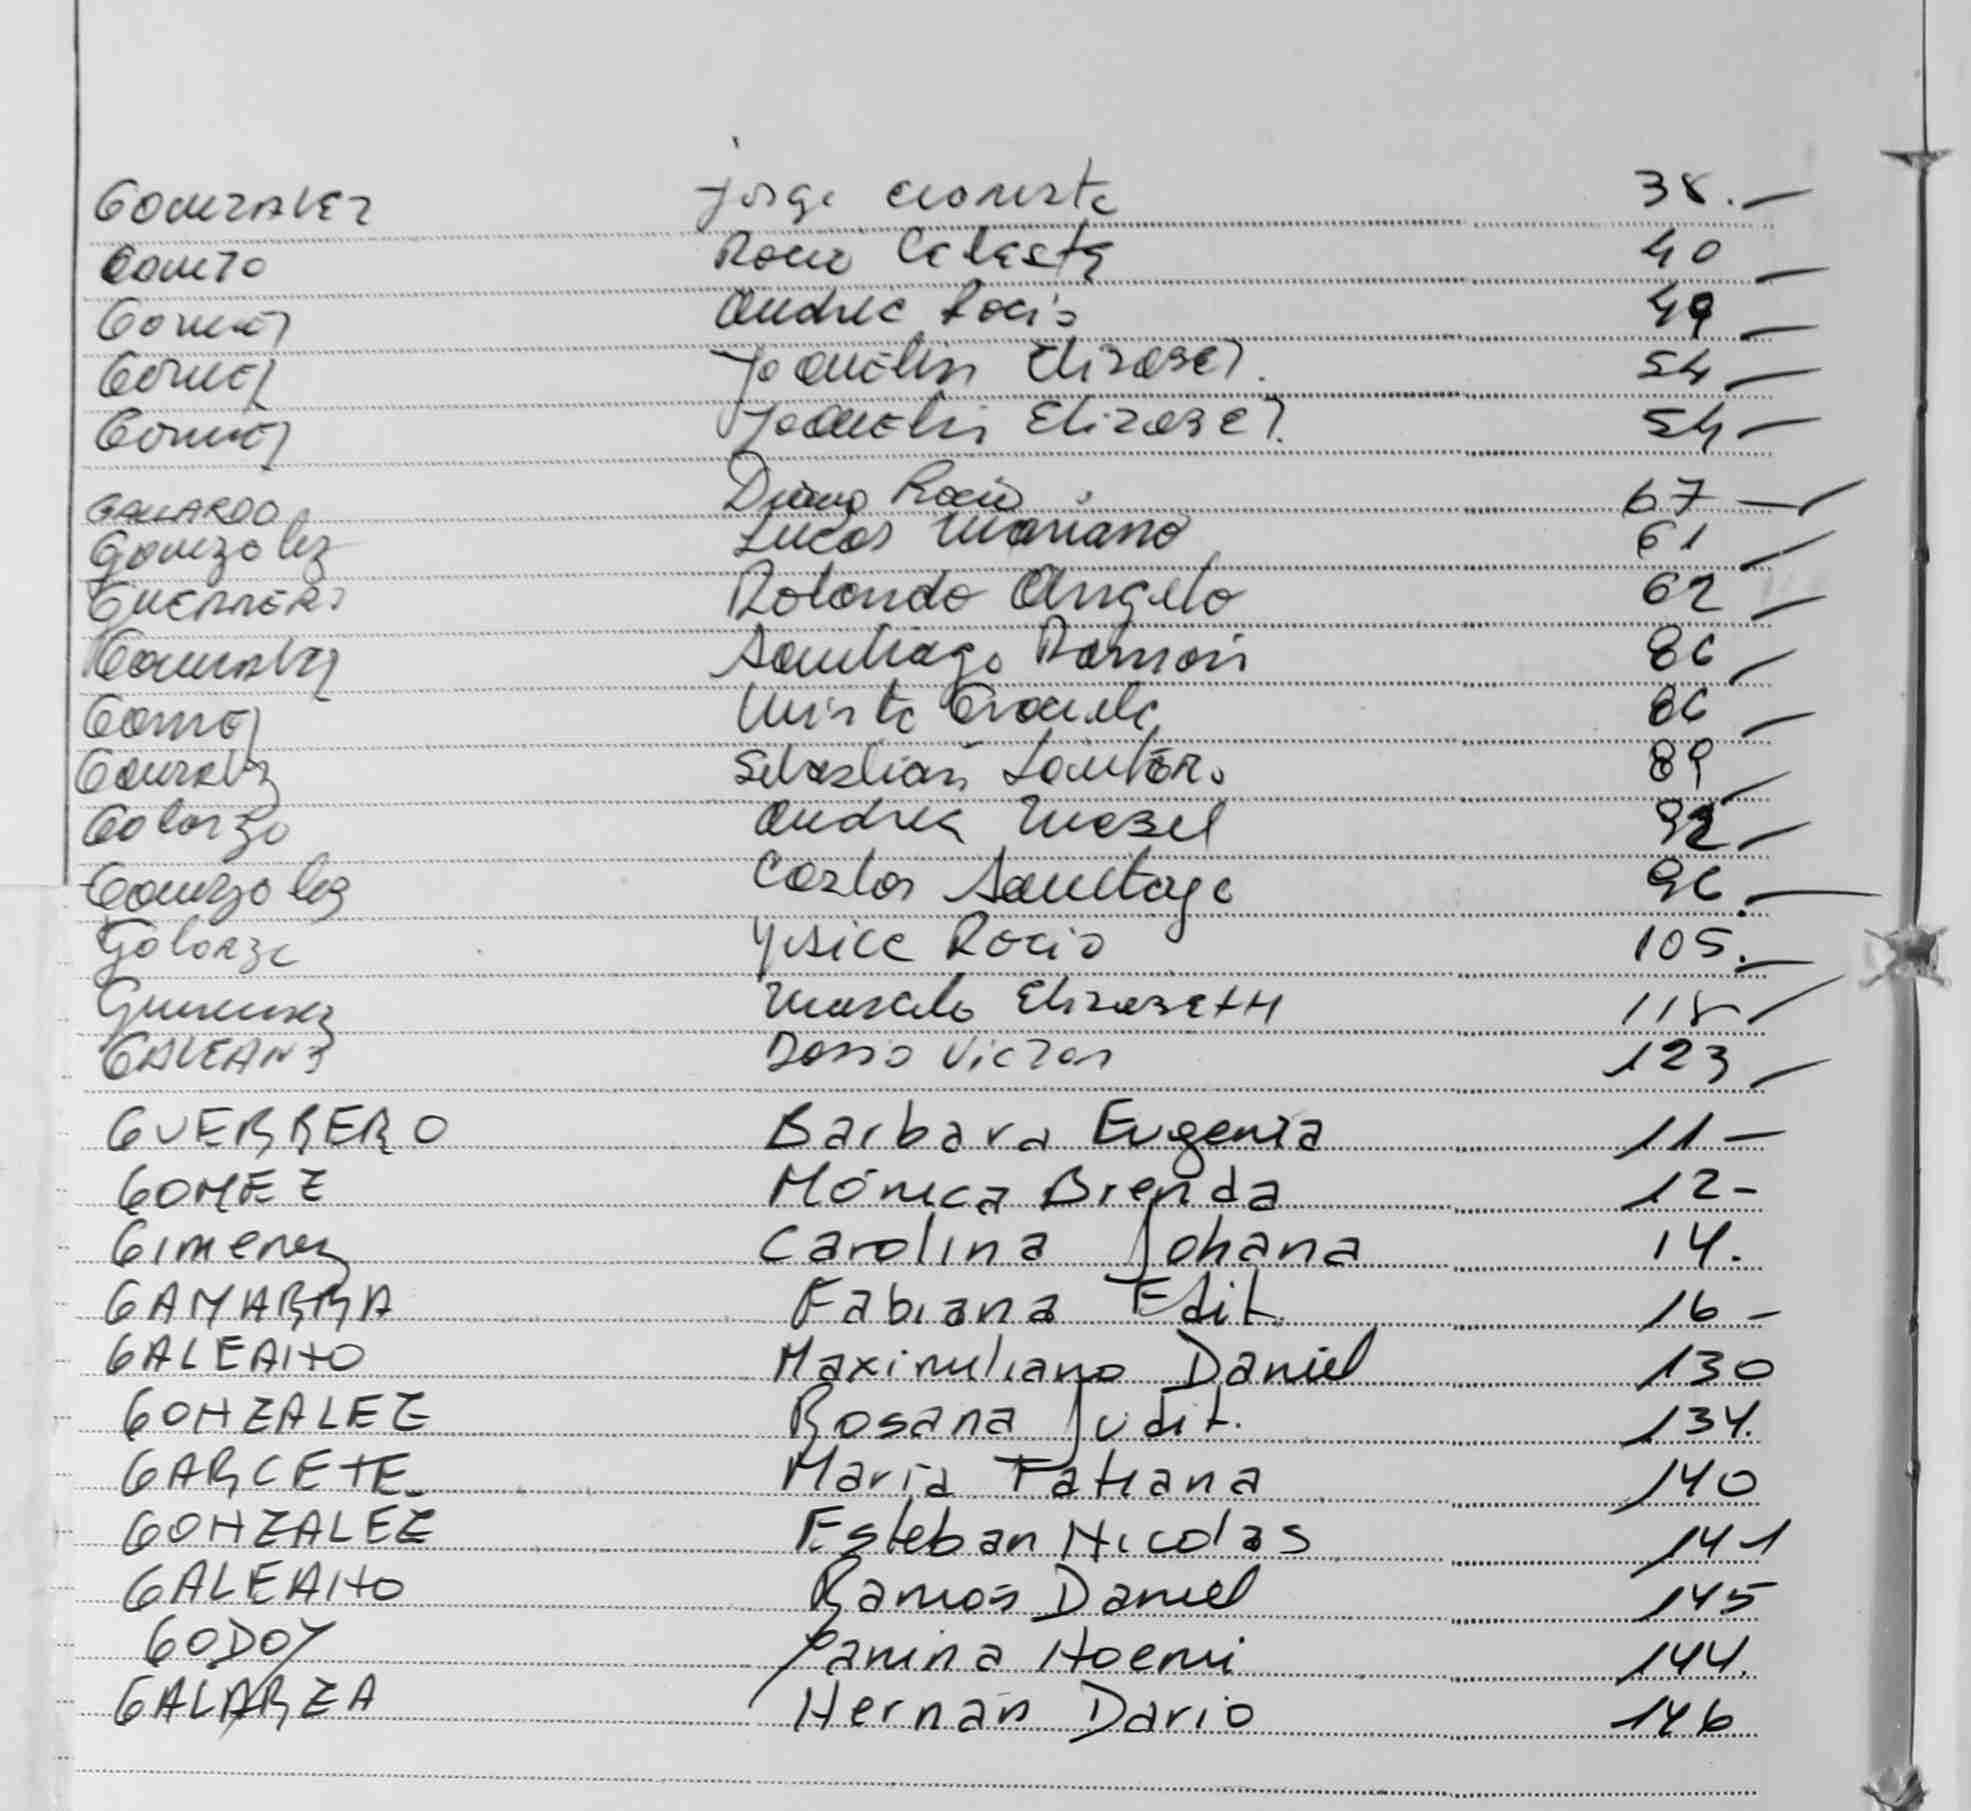 GONZALEZ Jorge 38.-
Rocio Celeste 40 -
Gomez Andrea Rocio 49 -
Gomez Joquelin Elizabet. 54 -
Gomez Joquelin Elizabet. 54 -
GALLARDO Diana Rocio 67 -
Gonzalez Lucas Mariano 61 -
GUERRERO Rolando Angelo 62 -
Gonzalez Santiago Ramon 86 -
Gomez Mirta Graciela 86 -
Gonzalez Sebastian Lautaro 89 -
Galarza Andrea Mabel 92 -
Gonzalez Carlos Santiago 96.-
Galarza Yesica Rocio 105.-
Gimenez Marcela Elizabeth 118 -
GALEANO Dario Victor 123 -
GUERRERO Barbara Eugenia 11 -
GOMEZ Mónica Brenda 12 -
Gimenez Carolina Johana 14.
GAMARRA Fabiana Edit. 16 -
GALEANO Maximiliano Daniel 130
GONZALEZ Rosana Judit. 134.
GARCETE Maria Tatiana 140
GONZALEZ Esteban Nicolas 141
GALEANO Ramón Daniel 145
GODOY Yanina Noemi 144.
GALARZA Hernán Dario 146